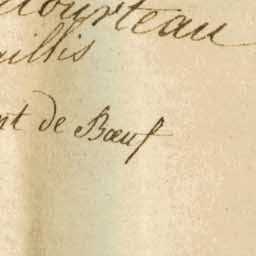 ourteau
aillis
nt de Bœuf